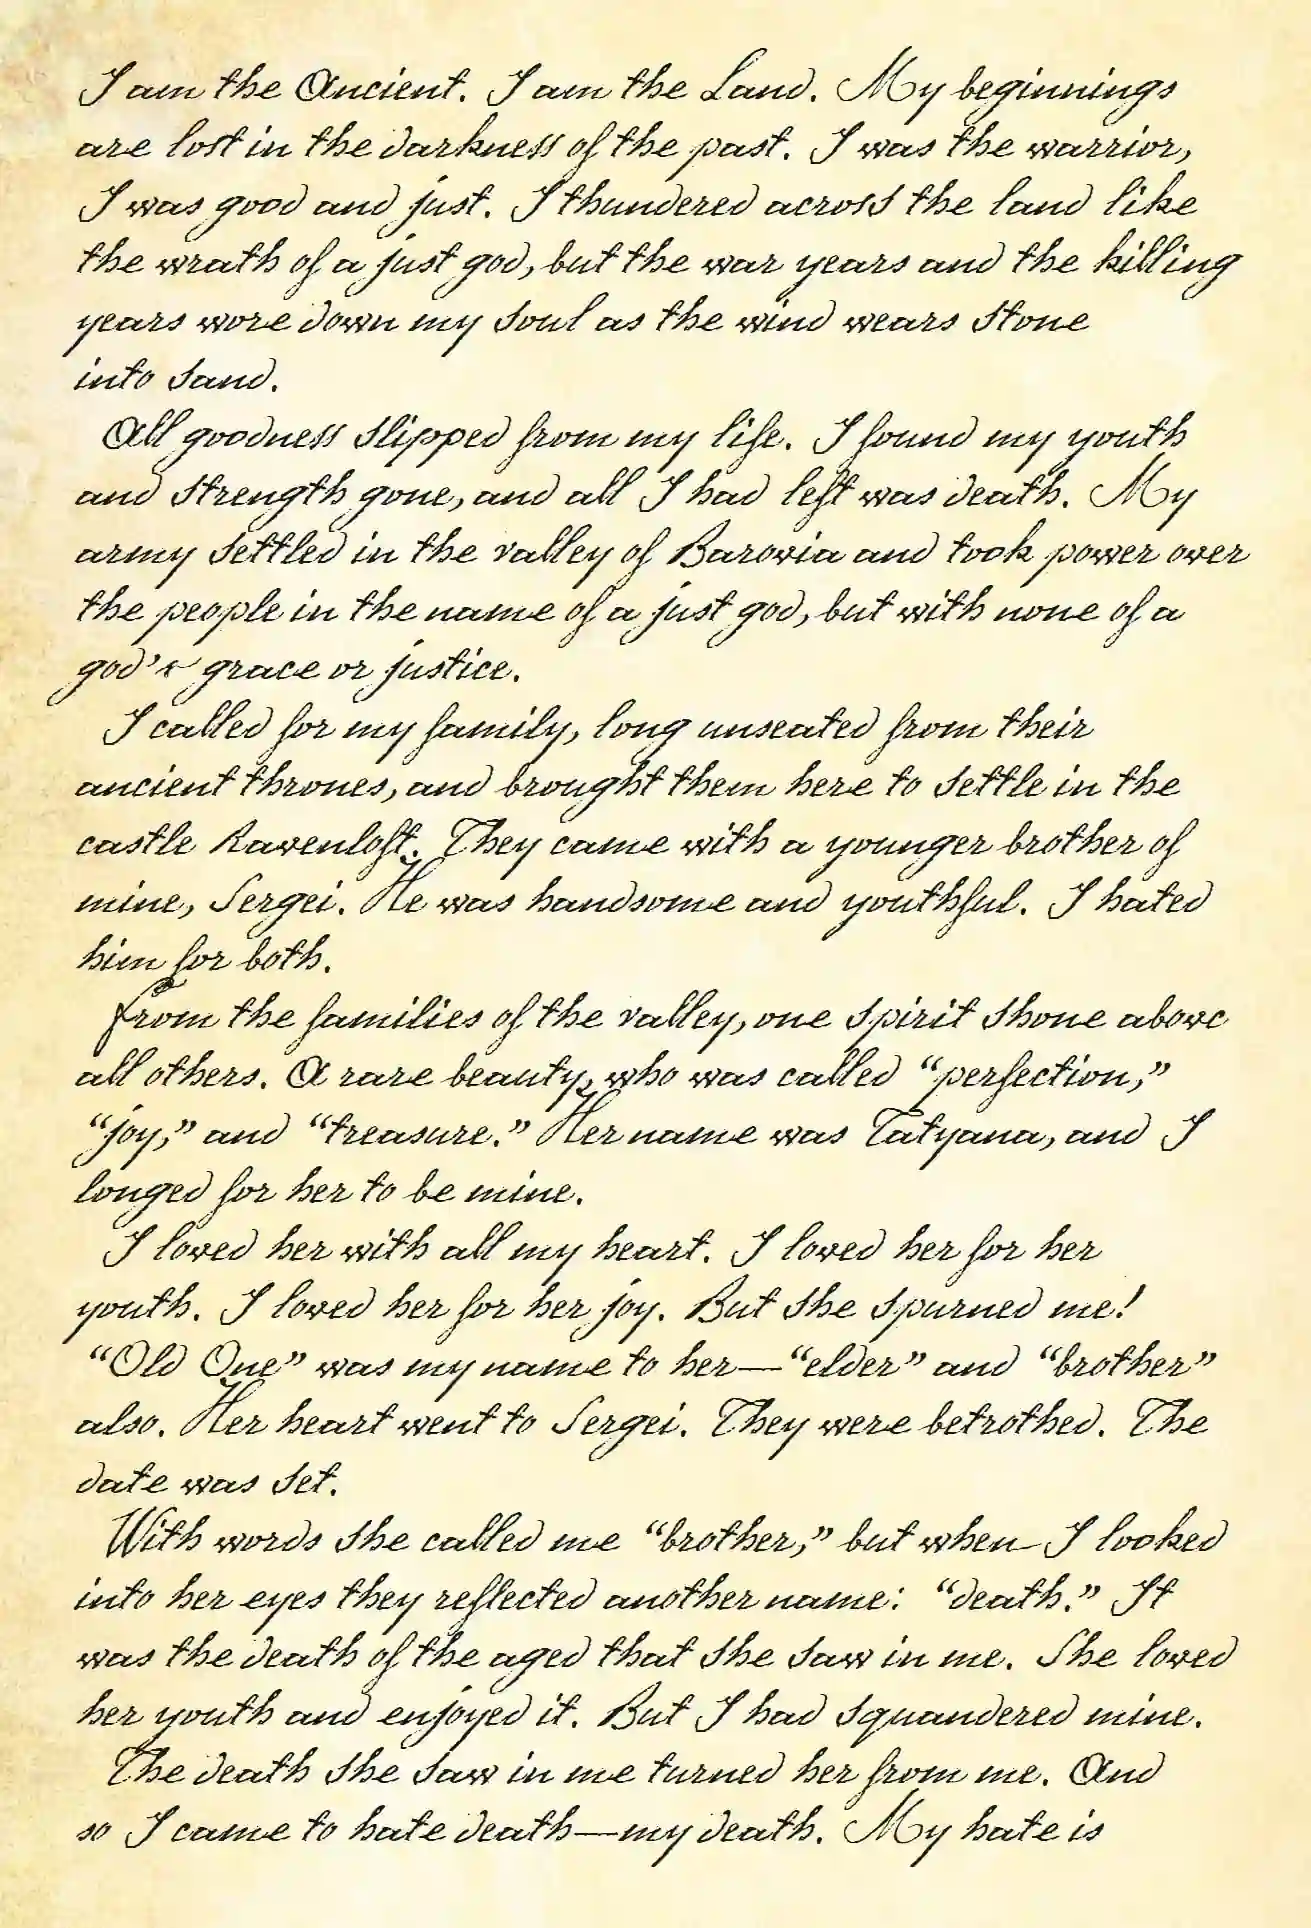 I am the Ancient. I am the Land. My beginnings
are lost in the darkness of the past. I was the warrior,
I was good and just. I thundered across the land like
the wrath of a just god, but the war years and the killing
years wore down my soul as the wind wears stone
into sand.
All goodness slipped from my life. I found my youth
and strength gone, and all I had left was death. My
army settled in the valley of Barovia and took power over
the people in the name of a just god, but with none of a
god's grace or justice.
I called for my family, long unseated from their
ancient thrones, and brought them here to settle in the
castle Ravenloft. They came with a younger brother of
mine, Sergei. He was handsome and youthful. I hated
him for both.
From the families of the valley, one spirit shone above
all others. A rare beauty, who was called “perfection,”
“joy,” and “treasure.” Her name was Tatyana, and I
longed for her to be mine.
I loved her with all my heart. I loved her for her
youth. I loved her for her joy. But she spurned me!
“Old One” was my name to her—“elder” and “brother”
also. Her heart went to Sergei. They were betrothed. The
date was set.
With words she called me “brother,” but when I looked
into her eyes they reflected another name: “death.” It
was the death of the aged that she saw in me. She loved
her youth and enjoyed it. But I had squandered mine.
The death she saw in me turned her from me. And
so I came to hate death—my death. My hate is